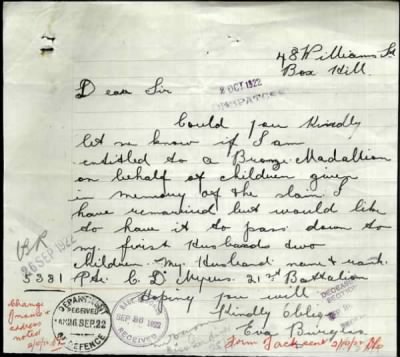 48 Williams St
Box Hill
2 OCT 1922
DESPATCHED
Dear Sir
Could you Kindly
let me know if I am
entitled to a Bronze Medallion
on behalf of children given
in memory of the slain. I
have remarried but would like
to have it to pass down to
my first Husbands two
children. My Husband name & rank
26 SEP 1922
5381 Pte. C D' Myers 21st Battalion
Hoping you will
Kindly Oblige
Eva
change
name &
address
noted
DEPARTMENT
26 SEP. 22
OF DEFENCE
BASE RECORDS
SEP 26 1922
RECEIVED
DECEASED
SECTION
form